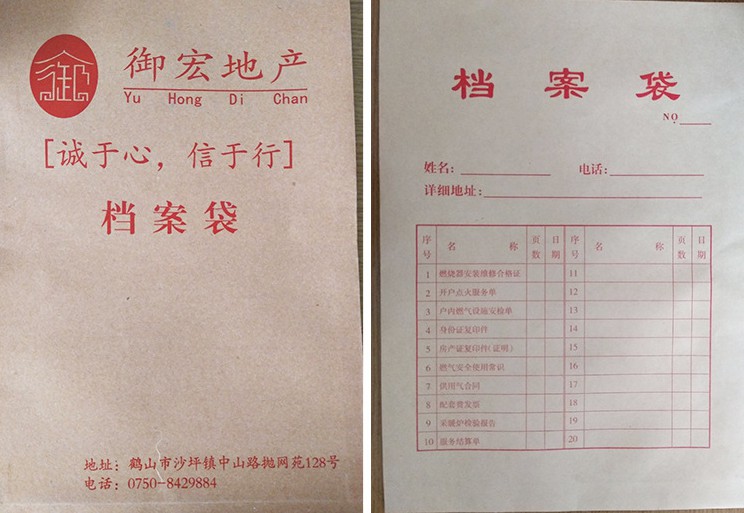 御
御宏地产
Yu Hong Di Chan
[诚于心，信于行]
档案袋
地址：鹤山市沙坪镇中山路抛网苑128号
电话：0750-8429884
档案袋
NO
姓名： 电话：
详细地址：
序号 名称 页数 日期 序号 名称 页数 日期
1 燃烧器安装维修合格证 11
2 开户点火服务单 12
3 户内燃气设施安检单 13
4 身份证复印件 14
5 房产证复印件(证明) 15
6 燃气安全使用常识 16
7 供用气合同 17
8 配套费发票 18
9 采暖炉检验报告 19
10 服务结算单 20